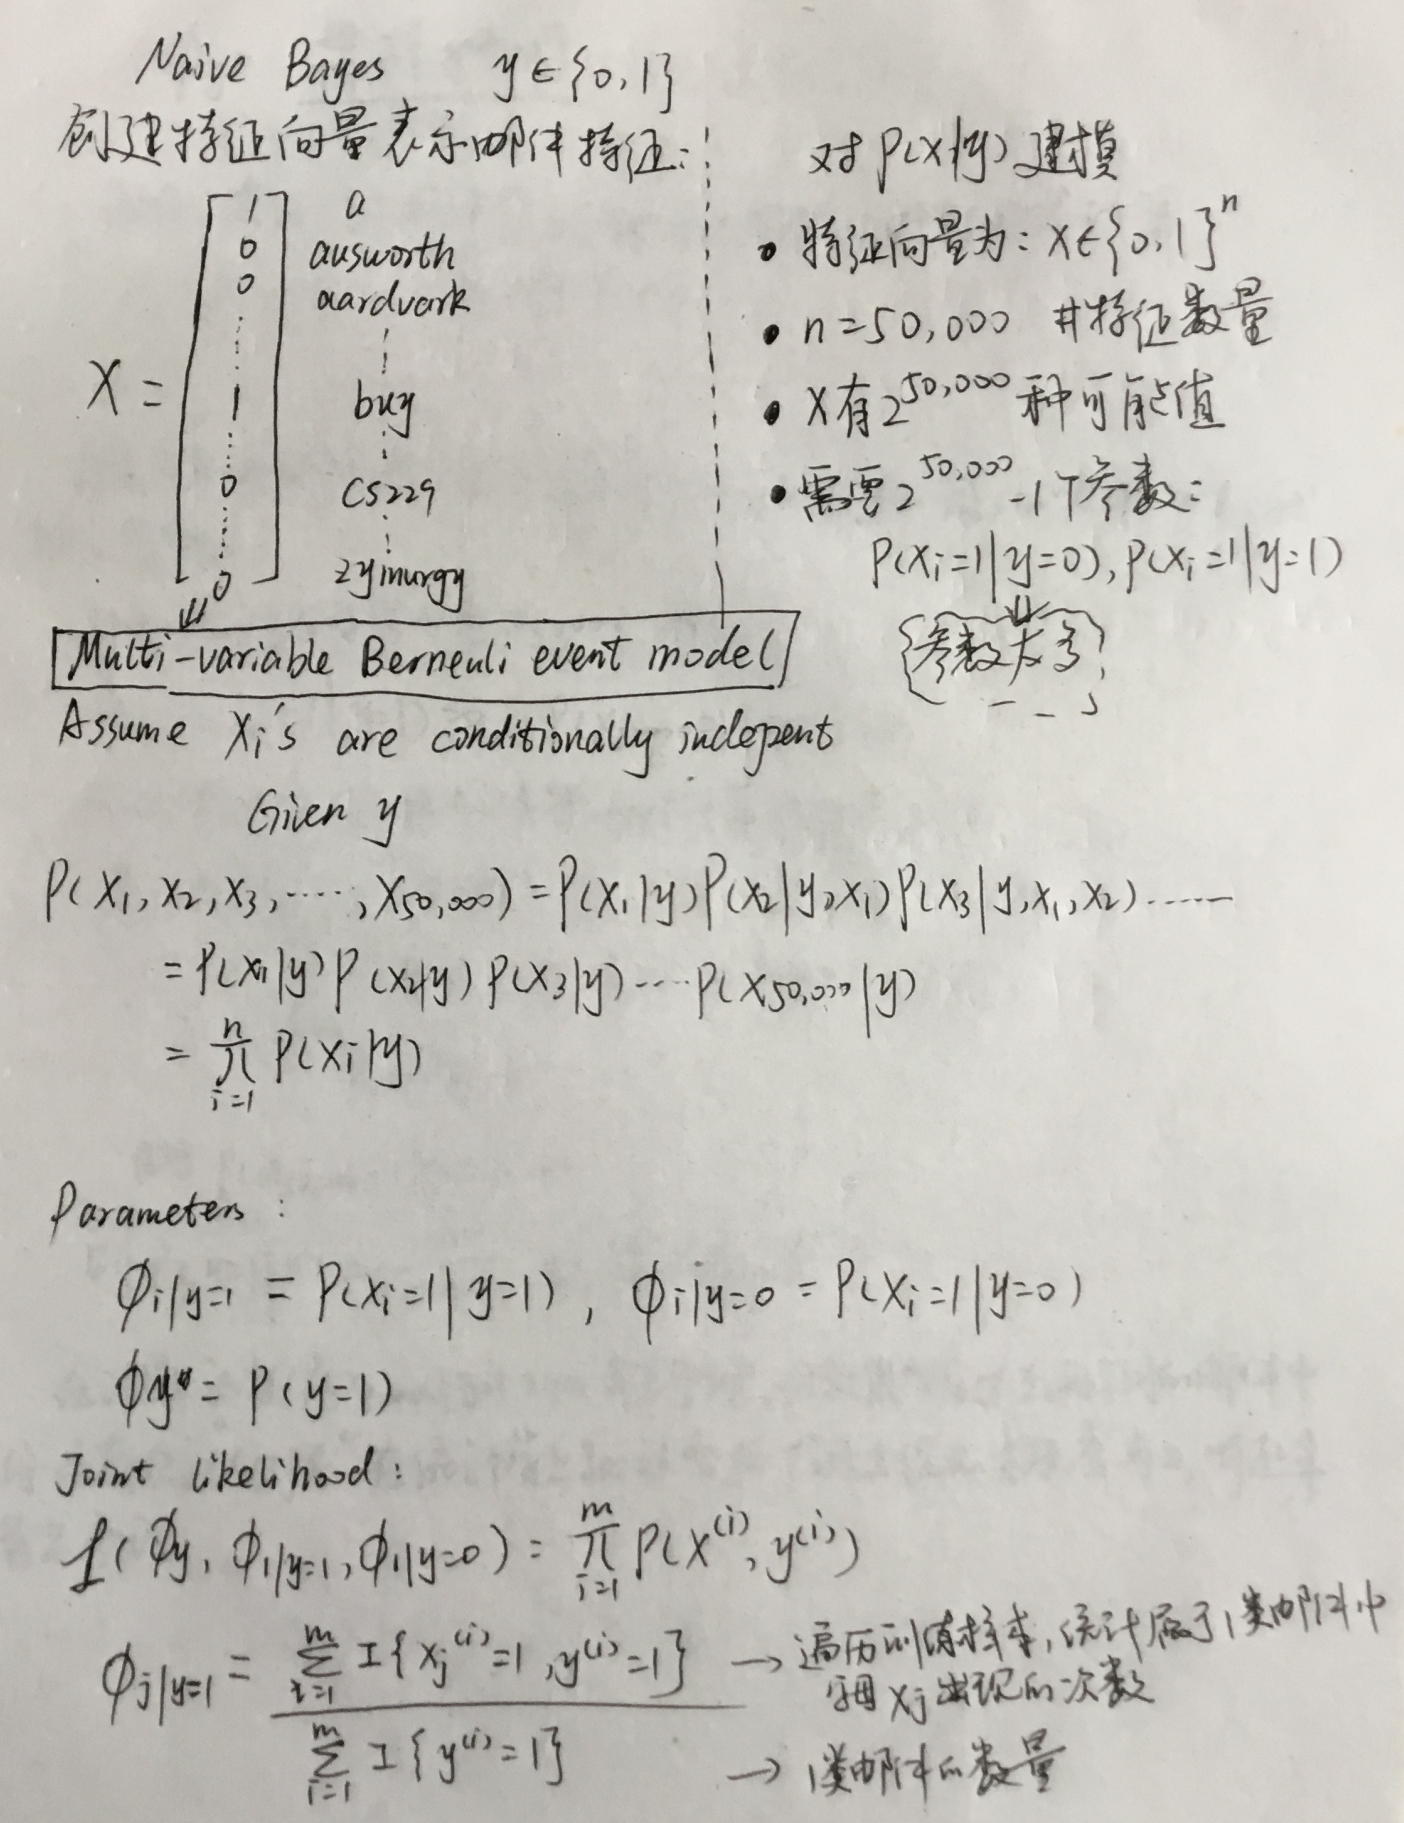 Naive Bayes y∈{0,1}
创建特征向量表示邮件特征:
X =
1 a
0 ausworth
0 aardvark
1 buy
0 CS229
0 zymurgy
对 P(X|y) 建模
• 特征向量为: X∈{0,1}ⁿ
• n=50,000 #特征数量
• X有2^50,000 种可能值
• 需要2^50,000 -1个参数:
P(Xi=1|y=0), P(Xi=1|y=1)
参数太多!
Multi-variable Berneuli event model
Assume Xi's are conditionally indepent
Given y
P(X1, X2, X3, ……, X50,000) = P(X1|y)P(X2|y,X1)P(X3|y,X1,X2)……
= P(X1|y)P(X2|y)P(X3|y)…P(X50,000|y)
= ∏_{i=1}^{n} P(Xi|y)
Parameters:
φi|y=1 = P(Xi=1|y=1), φi|y=0 = P(Xi=1|y=0)
φy = P(y=1)
Joint likelihood:
L(φy, φi|y=1, φi|y=0) = ∏_{i=1}^{m} P(X^(i), y^(i))
φj|y=1 = ∑_{i=1}^{m} I{Xj^(i)=1, y^(i)=1} → 遍历训练样本,统计属于1类邮件中
Xj出现的次数
∑_{i=1}^{m} I{y^(i)=1} → 1类邮件的数量